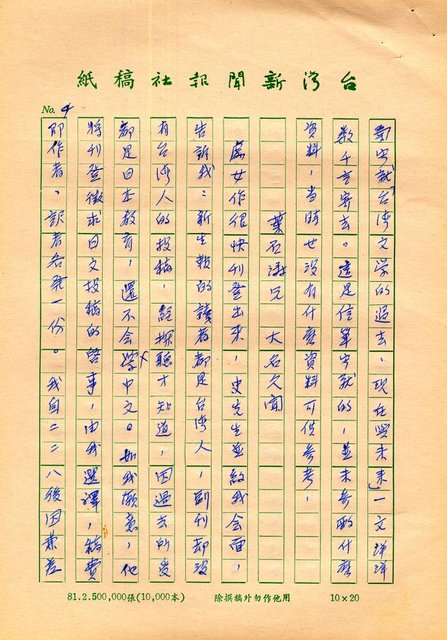 台灣新聞報社稿紙
No. 4
寫完就「台湾文学的過去、現在與未来」一文洋洋
数千言寄去。這是信筆寫就的，並未参酌什麼
資料，当時也没有什麼資料可供参考，
葉石濤兄 大名久聞
處女作很快刊登出来，史先生並約我会面，
告訴我：新生報的讀者都是台湾人，副刊却没
有台湾人的投稿，経探聽才知道，因過去所受
都是日本教育，還不会学中文。如我願意，他
將刊登徵求日文投稿的啓事，由我選譯，稿費
即作者、訳者各分一份。我自二二八後因兼差
81.2.500,000張(10,000本) 除撰稿外勿作他用 10×20